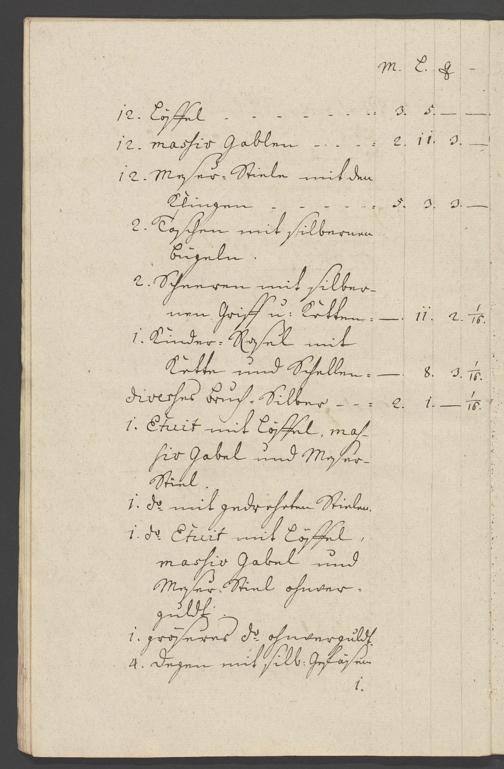 M. L. q
12. Löffel - - - - - - - 3. 5. — —
12. massiv Gablen - - - : 2. 11. 3. —
12. Messer-Stiele mit den
Klingen - - - - - : 5. 3. 3. —
2. Taschen mit silbernen
bügeln.
2. Scheeren mit silber-
nen Griff u: Ketten : — . 11. 2. 1/16.
1. Kinder-Rasel mit
Kette und Schellen : — . 8. 3. 1/16.
diverses Bruch-Silber - - : 2. 1. — 1/16.
1. Etuit mit Löffel, mas-
siv Gabel und Messer-
Stiel.
1. do mit gedrehten Stielen.
1. do Etuit mit Löffel,
massiv Gabel und
Messer-Stiel ohnver-
guldt.
1. gröseres do ohnverguldt
4. Degen mit silb: Gefäsen
1.